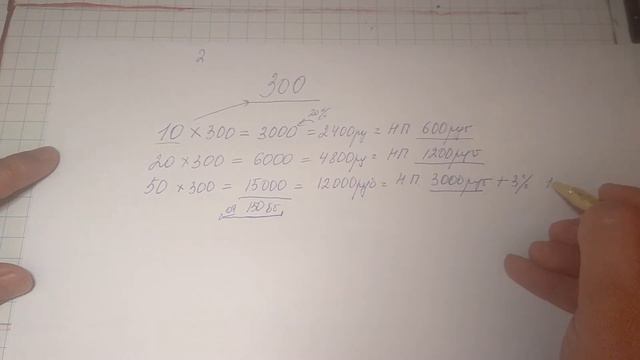 2
300
20%
10 × 300 = 3000 = 2400ру = НП 600руб
20 × 300 = 6000 = 4800ру = НП 1200руб
50 × 300 = 15000 = 12000руб = НП 3000руб + 3% 1
150 бб